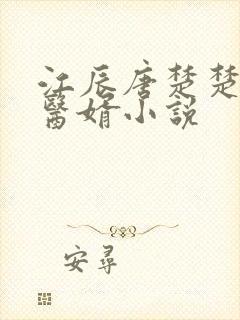 江辰唐楚楚
醫婿小說
安尋